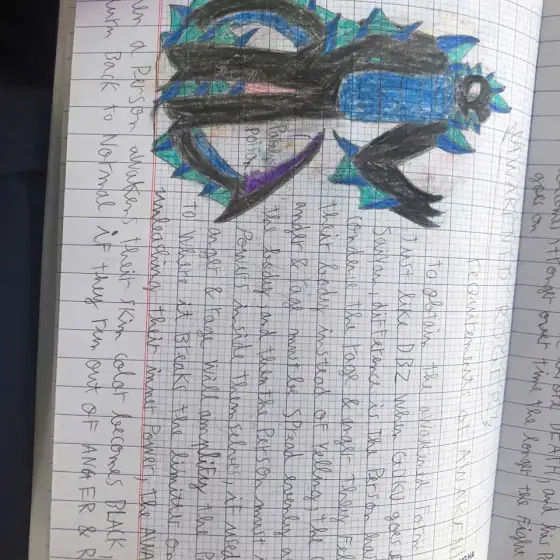 DEATH, and his
stronger over time the longer the Fight
goes on
Recuirements of AWAKE
to obtain the awakened Form
Just like DBZ when GOKU goes
Saiyan, difference is the Person has
condense the rage & anger they Fe
their body instead of yelling, the
anger & rage must be SPread evenly a
the bodey, and then the Person must
Powers inside them selves, it need
anger & rage will amplify the P
to where it Breaks the limitts on
unleashing their inner Power, the AWA
en a Person awakens their skin color becomes BLACK,
urn Back to Normal if they run out of ANGER & R